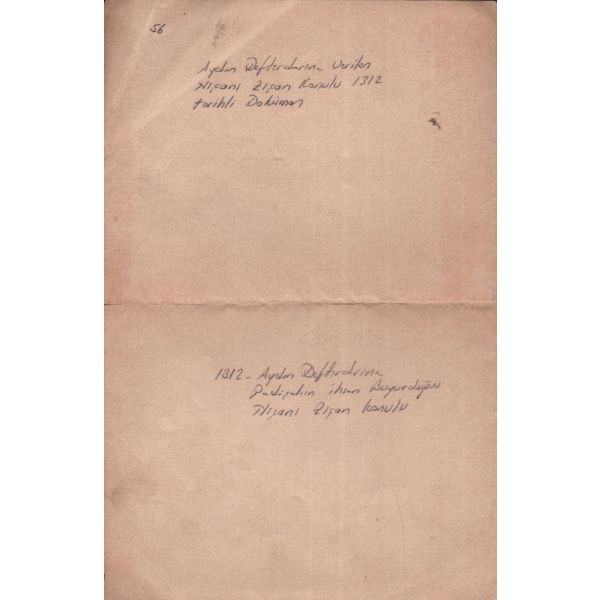 56
Aydın Defterdarına Verilen
Nişanı Zişan Konulu 1312
tarihli Doküman
1312 - Aydın Defterdarına
Padişahın ihsan Buyurduğu
Nişanı Zişan Konulu